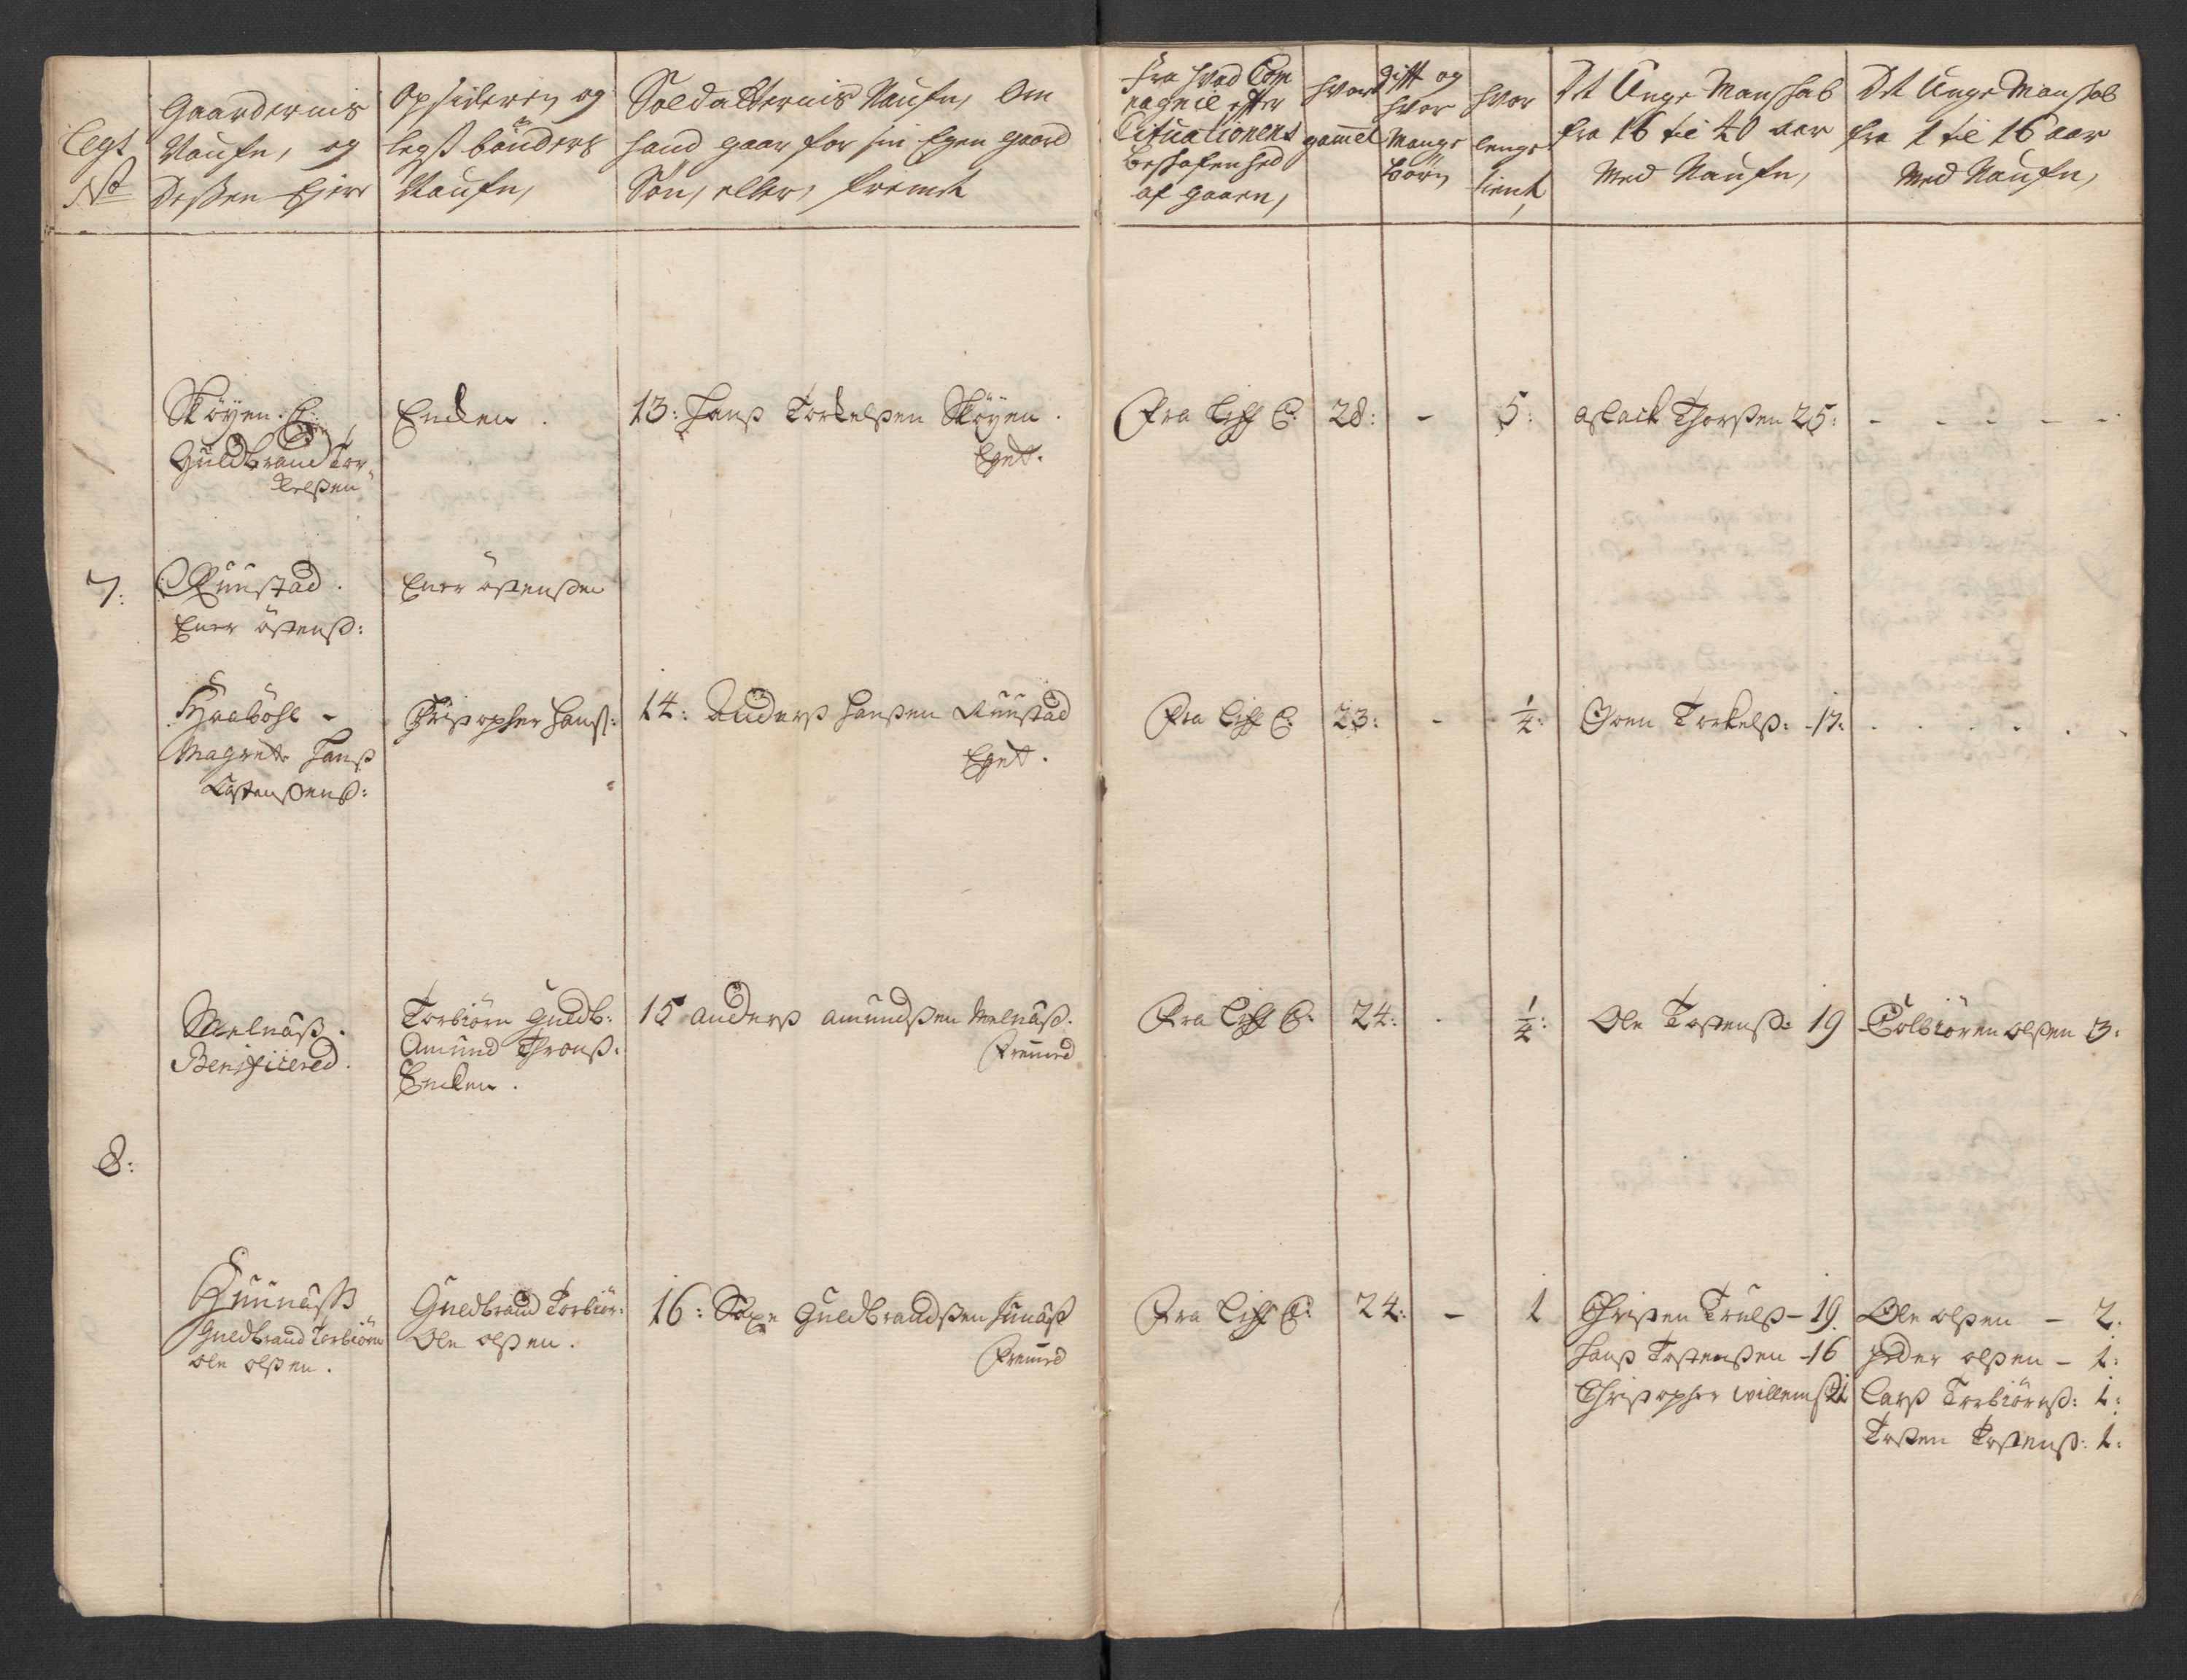 Legt
No
Gaardernis
Naufn, og
Dessen Ejere
Opsideren og
legst bönders
Naufn,
Soldatternis Naufn, Om
hand gaar for sin Egen gaard
Sön, eller, fremt
fra hvad Com
pagnie efter
Cituationens
Beskafenhed
af gaaen,
hvor
gammel
gift og
hvor
Mange
börn
hvor
lenge
tient,
Det Unge Manskab
fra 16 til 40 aar
Med Naufn,
Det Unge Manskab
fra 1 til 16 aar
Med Naufn,
Sköyen.
Guldbrand Tor
kelsen
Encken.
13: Hans Torkelsen Sköyen.
Eget.
Fra Liff C: 28: - 5:
Aslack Thorsen 25: - - - - -
7:
Ruustad.
Ener östens:
Ener östensen
Hraböhl -
Magrete Hans
Östensens:
Christopher Hans:
14: Anders Hansen Ruustad
Eget.
Fra Liff C: 23: - 1/4:
Joen Torkels: -17: . . . . .
Melnäs.
Benificered.
Torbiörn Guldb:
Amund Throns:
Encken.
15 Anders Amundsen Melnäs.
Fremed
Fra Liff C: 24: - 1/4:
Ole Tostens: 19
Tolbiören olsen 3:
8:
Huunäss
Guldbrand Torbiörn
Ole olsen.
Guldbrand Torbiör:
Ole olsen.
16: Saxe Guldbrandsen Hunäs
Fremed
Fra Liff C: 24: - 1
Christen Truls - 19
Hans Tostensen -16
Christopher Willems 21
Ole olsen - 2.
Peder olsen - 1:
Lars Torbiörns: 1:
Tosten Tostens: 1: